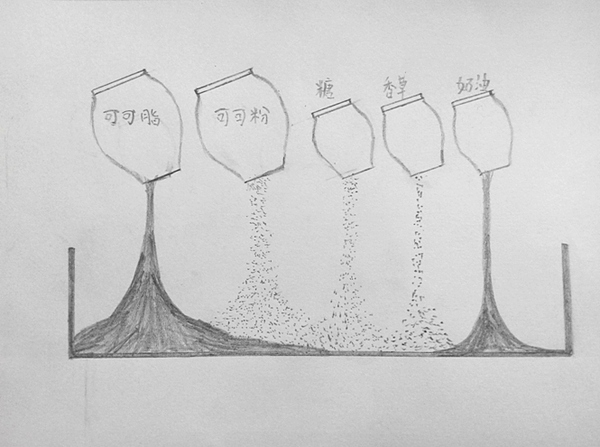 可可脂
可可粉
糖
香草
奶油